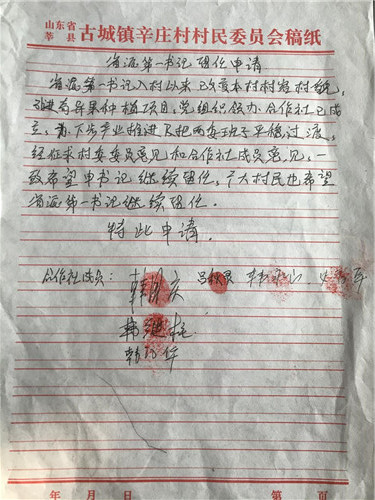 山东省
莘县 古城镇辛庄村村民委员会稿纸
省派第一书记留任申请
省派第一书记入村以来,已改变本村村容村貌,
引进有异果种植项目,党组织领办合作社已成
立,为下步产业推进及把两委班子平稳过渡,
经征求村委委员意见和合作社成员意见,一
致希望申书记继续留任,广大村民也希望
省派第一书记继续留任.
特此申请.
合作社成员:
年 月 日 第 页